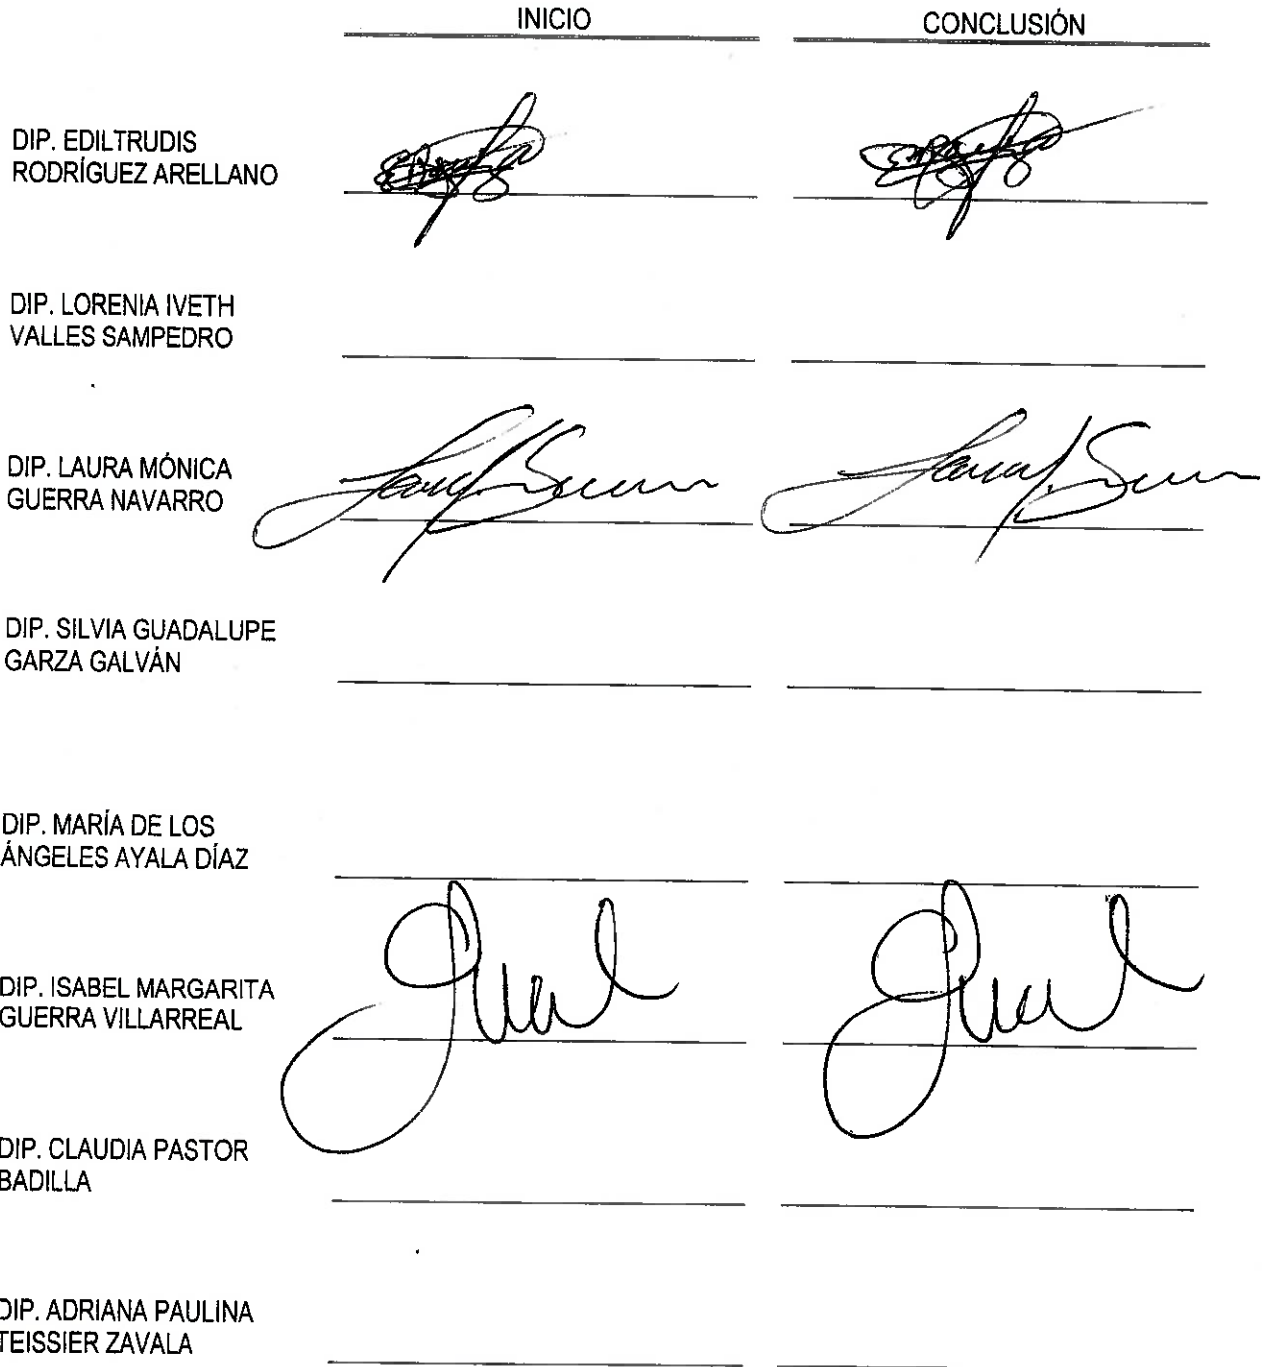 INICIO CONCLUSIÓN
DIP. EDILTRUDIS
RODRÍGUEZ ARELLANO
DIP. LORENIA IVETH
VALLES SAMPEDRO
DIP. LAURA MÓNICA
GUERRA NAVARRO
DIP. SILVIA GUADALUPE
GARZA GALVÁN
DIP. MARÍA DE LOS
ÁNGELES AYALA DÍAZ
DIP. ISABEL MARGARITA
GUERRA VILLARREAL
DIP. CLAUDIA PASTOR
BADILLA
DIP. ADRIANA PAULINA
TEISSIER ZAVALA